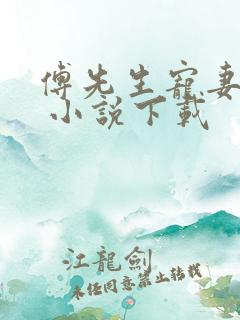 傅先生寵妻
小說下載
江龍劍
未经同意禁止转载